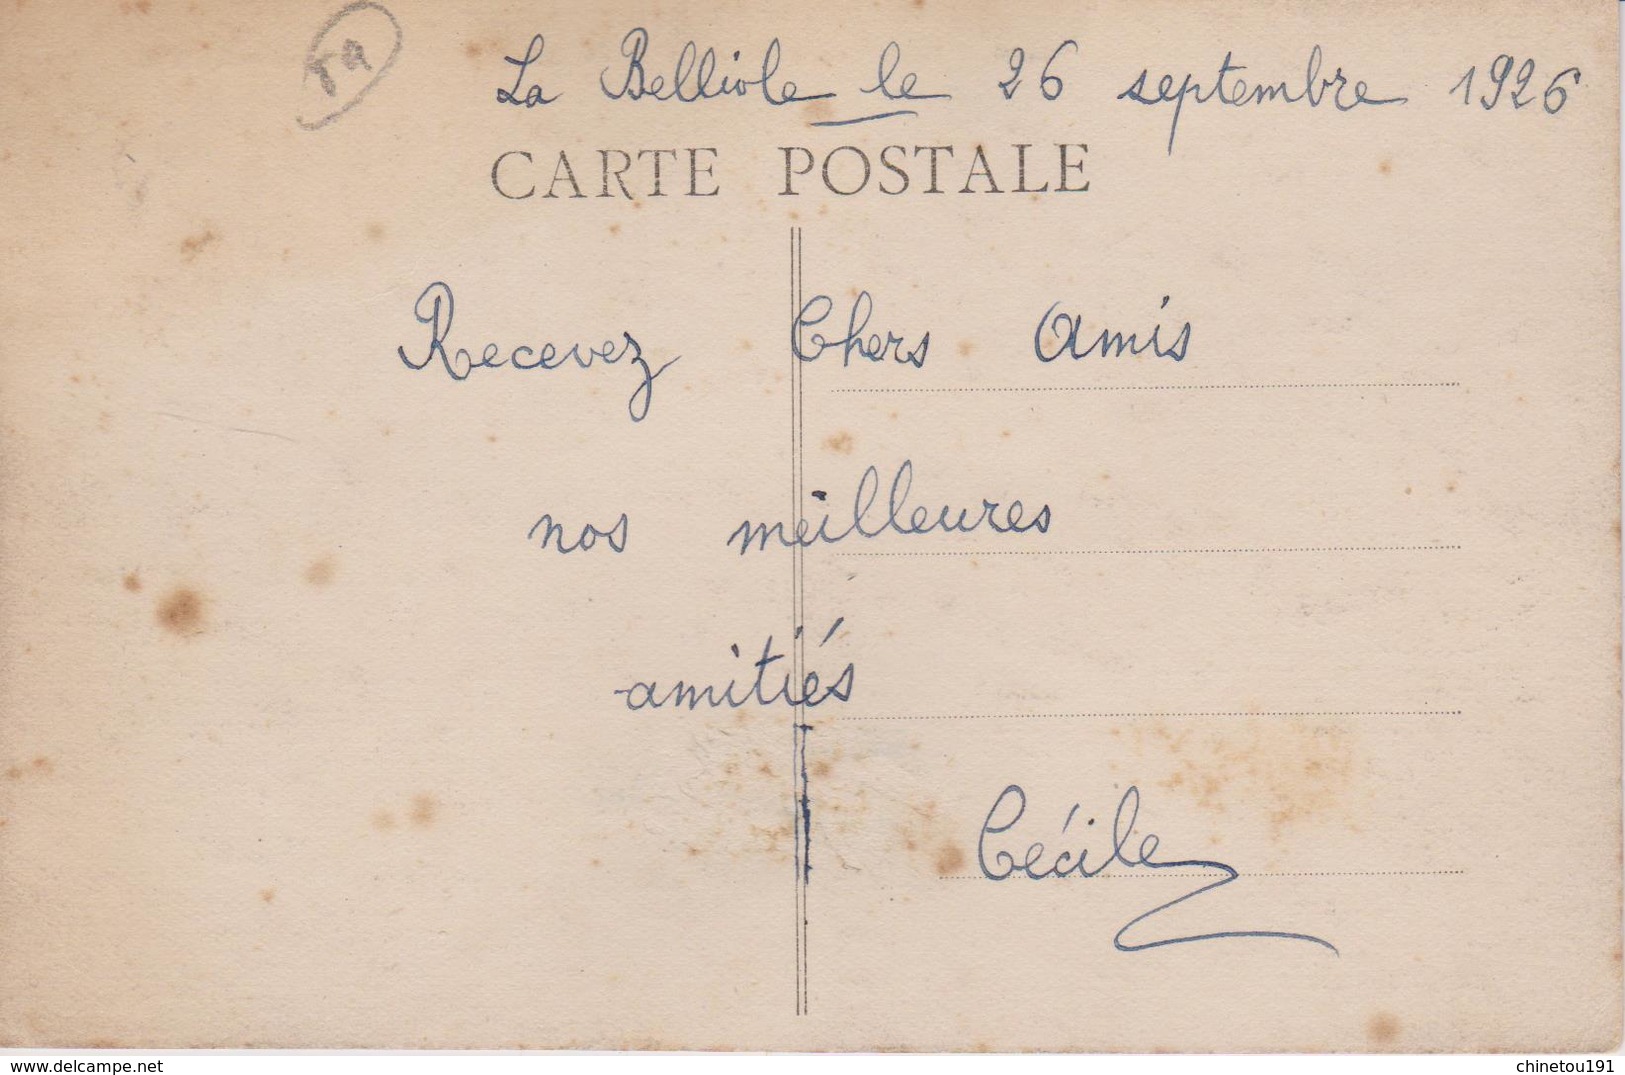 La Belliole le 26 septembre 1926
CARTE POSTALE
Recevez Chers Amis
nos meilleures
amitiés
Cécile
www.delcampe.net
chinetou191